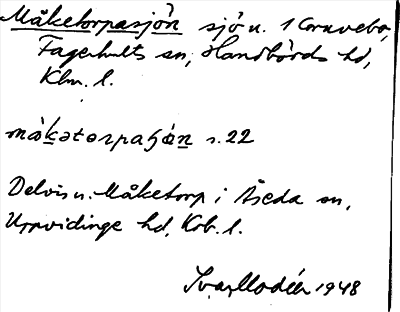 Måketorpasjön sjö u. 1 Coruvebo,
Fagerhults sn, Handbörds hd,
Klm. l.
måkətorpaʃö̀n s. 22
Delvis u. Måketorp i Åseda sn,
Uppvidinge hd, Krb. l.
Ivar Modéer 1948